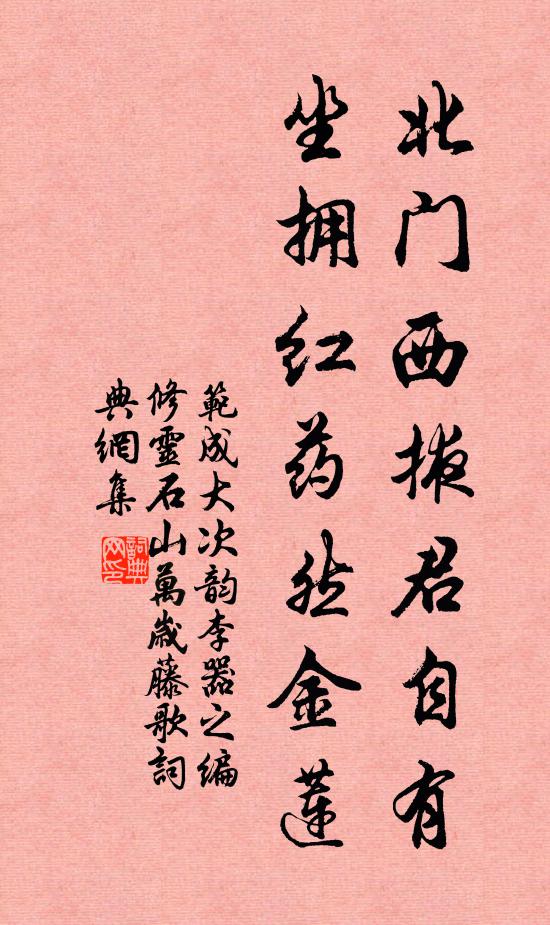 北门西掖君自有
坐拥红药然金莲
範成大次韵李器之编
修靈石山萬歲藤歌詞
典網集
詞典網印